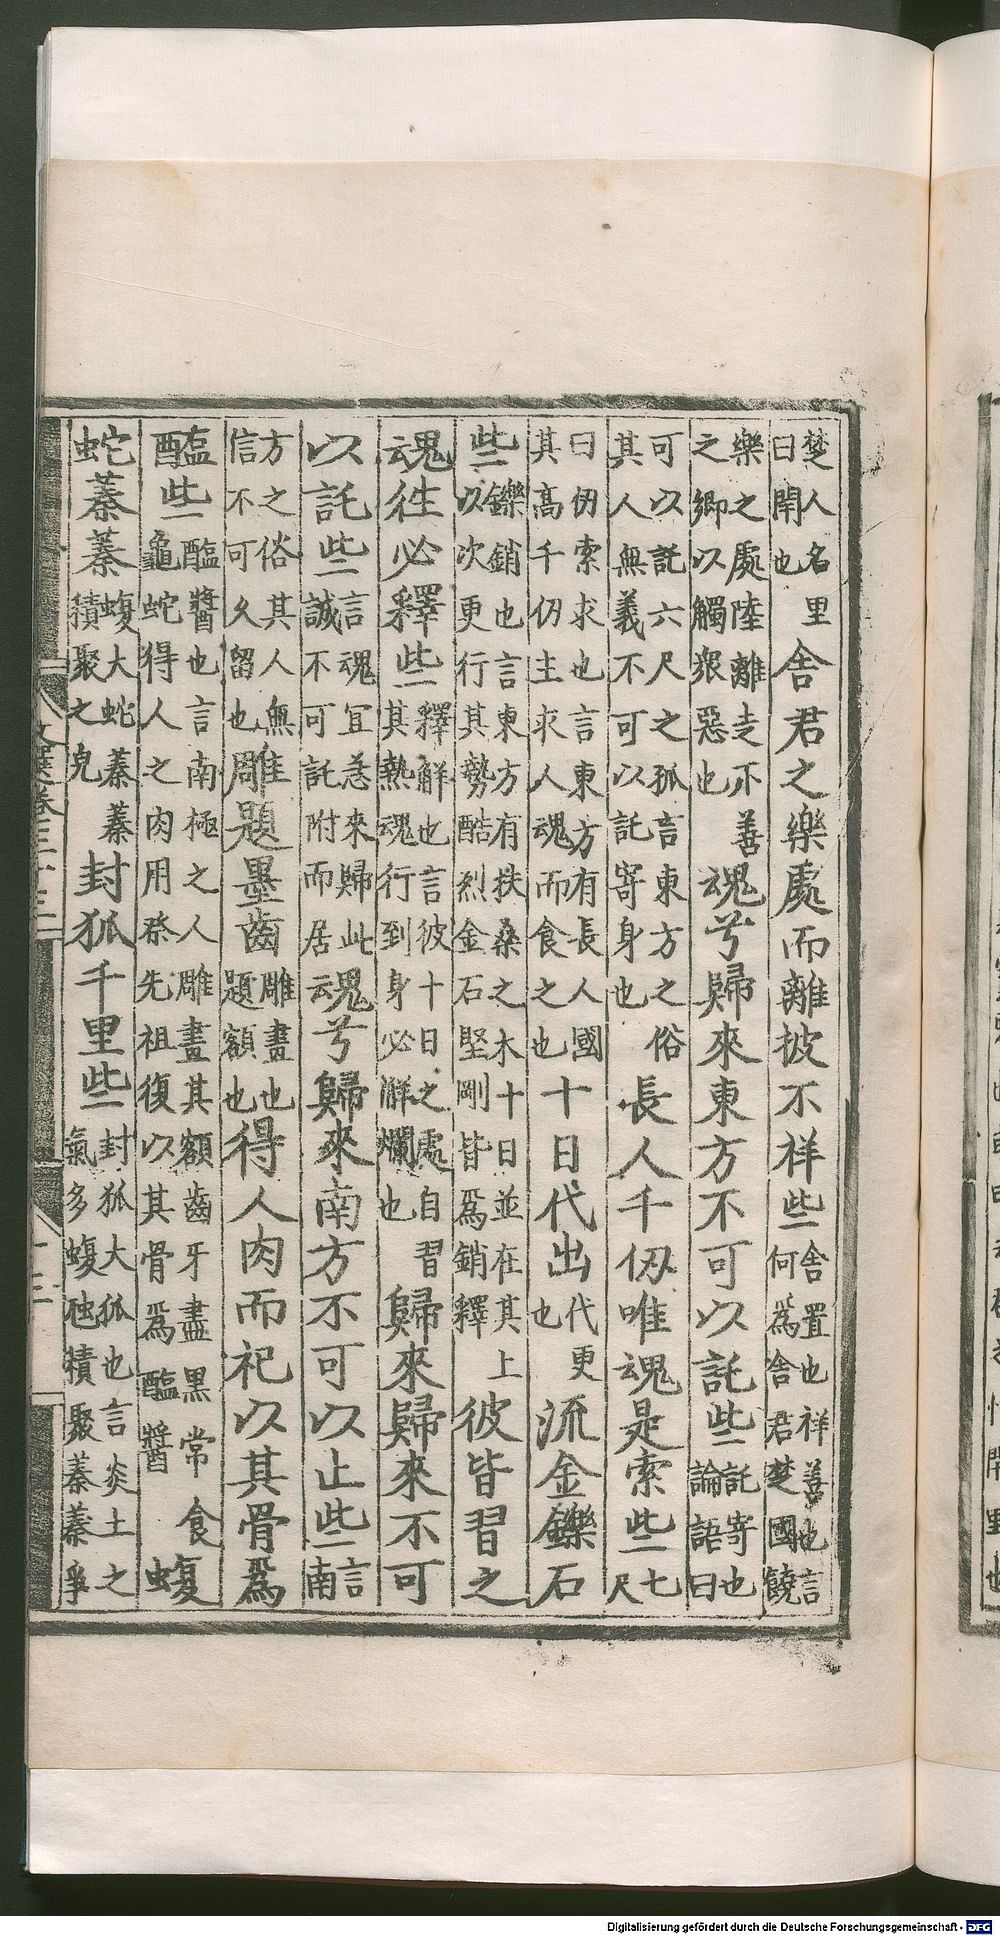 楚人名里曰閈也舍君之樂處而離彼不祥些舍置也祥善也言何爲舍君楚國饒
樂之處陸離走不善之鄉以觸衆惡也魂兮歸來東方不可以託些託寄也論語曰
可以託六尺之孤言東方之俗其人無義不可以託寄身也長人千仞唯魂是索些七尺
曰仞索求也言東方有長人國其高千仞主求人魂而食之也十日代出代更也流金鑠石
些鑠銷也言東方有扶桑之木十日並在其上以次更行其勢酷烈金石堅剛皆爲銷釋彼皆習之
魂往必釋些釋解也言彼十日之處自習其熱魂行到身必解爛也歸來歸來不可
以託些言魂宜急來歸此誠不可託附而居魂兮歸來南方不可以止些言南
方之俗其人無信不可久留也雕題墨齒雕畫也題額也得人肉而祀以其骨爲
醢些醢醬也言南極之人雕畫其額齒牙盡黑常食龜蛇得人之肉用祭先祖復以其骨爲醢醬蝮
蛇蓁蓁蝮大蛇蓁蓁積聚之皃封狐千里些封狐大狐也言炎土之氣多蝮虺積聚蓁蓁爭
文選卷三十三
十三
Digitalisierung gefördert durch die Deutsche Forschungsgemeinschaft - DFG